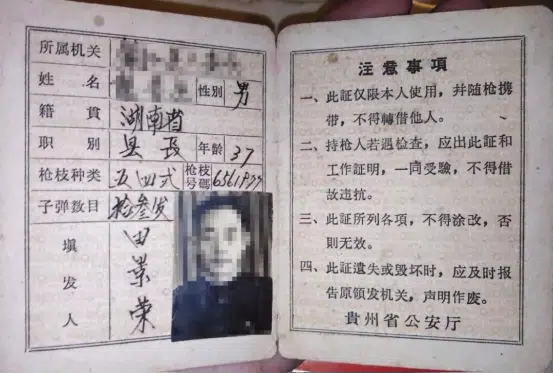 所属机关
姓 名 性别 男
籍 貫 湖南省
职 别 县長 年龄 37
枪枝种类 五四式 枪枝号碼
子弹数目 拾叁发
填发人 田景荣
注意事項
一、此証仅限本人使用，幷随枪携
帶，不得轉借他人。
二、持枪人若遇檢查，应出此証和
工作証明，一同受驗，不得借
故违抗。
三、此証所列各項，不得涂改，否
則无效。
四、此証遺失或毁坏时，应及时报
告原領发机关，声明作废。
貴州省公安厅